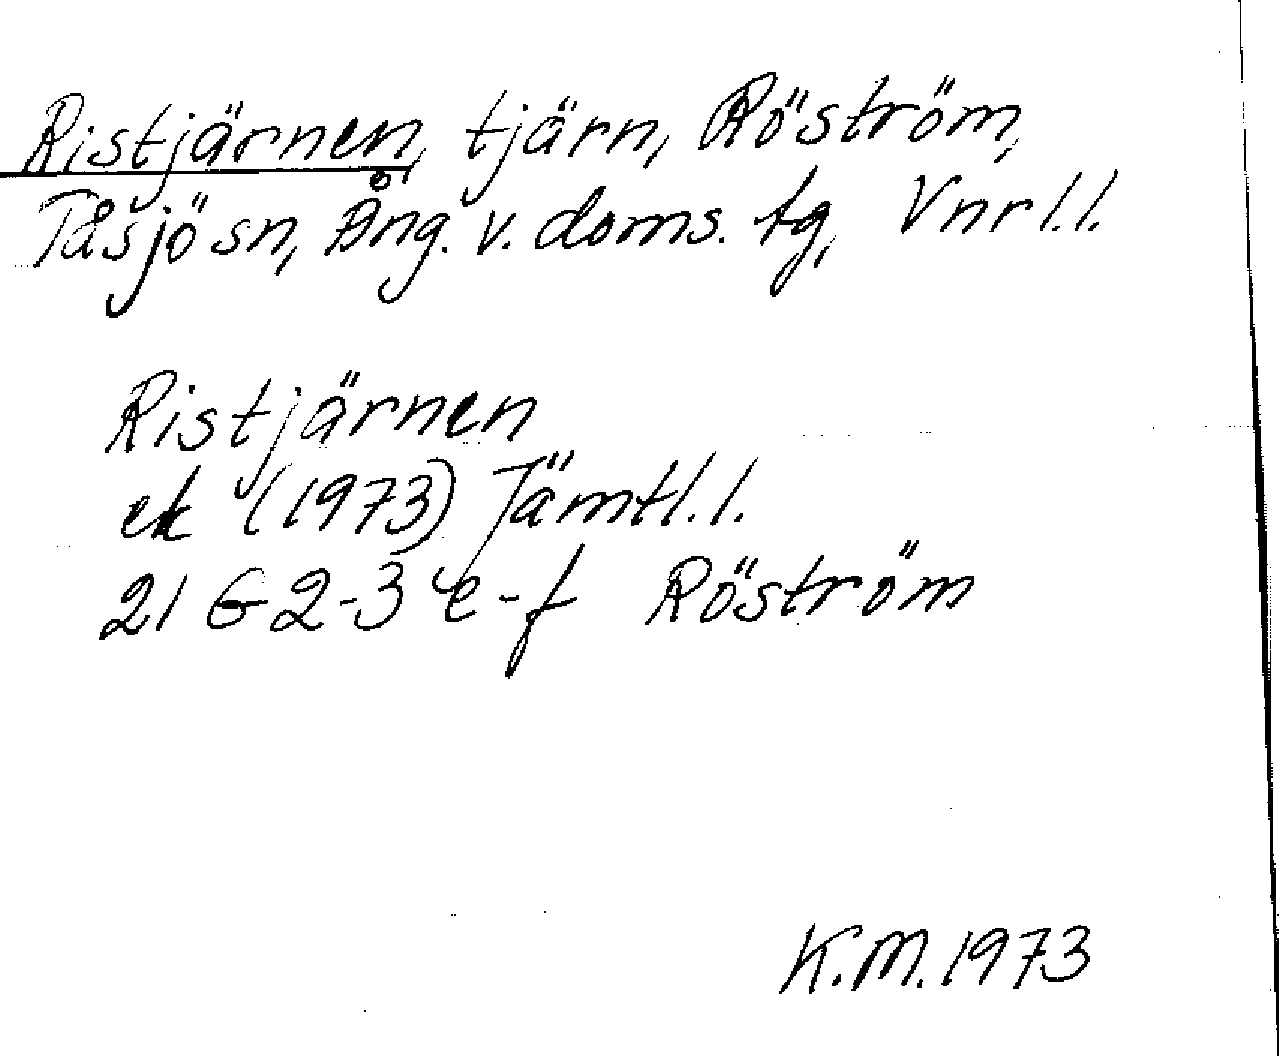 Ristjärnen, tjärn, Röström,
Tåsjö sn, Ång. v. doms. tg, Vnrl.l.
Ristjärnen
ek (1973) Jämtl.l.
21 G 2-3 e-f Röström
K.M. 1973